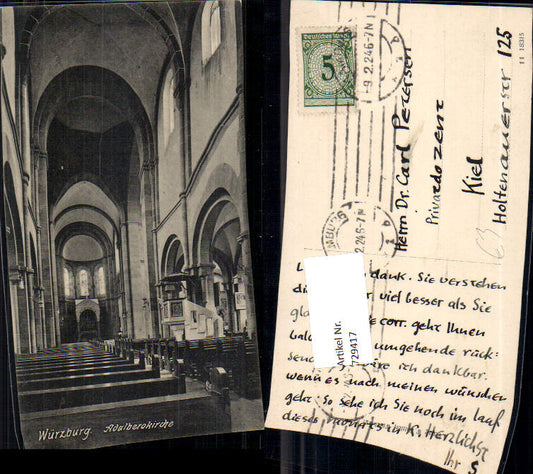 Würzburg. Adalberokirche
Deutsches Reich
5
9.2.24 6-7N
Herrn Dr. Carl Petersen
Privatdozent
Kiel
Holtenauerstr 125
63
dank. Sie verstehen
viel besser als Sie
corr. geht Ihnen
umgehende rück-
ich dankbar.
wenn es nach meinen wünschen
geht so sehe ich Sie noch im lauf
dieses monats in K. Herzlichst
Ihr S
Artikel Nr.
729417